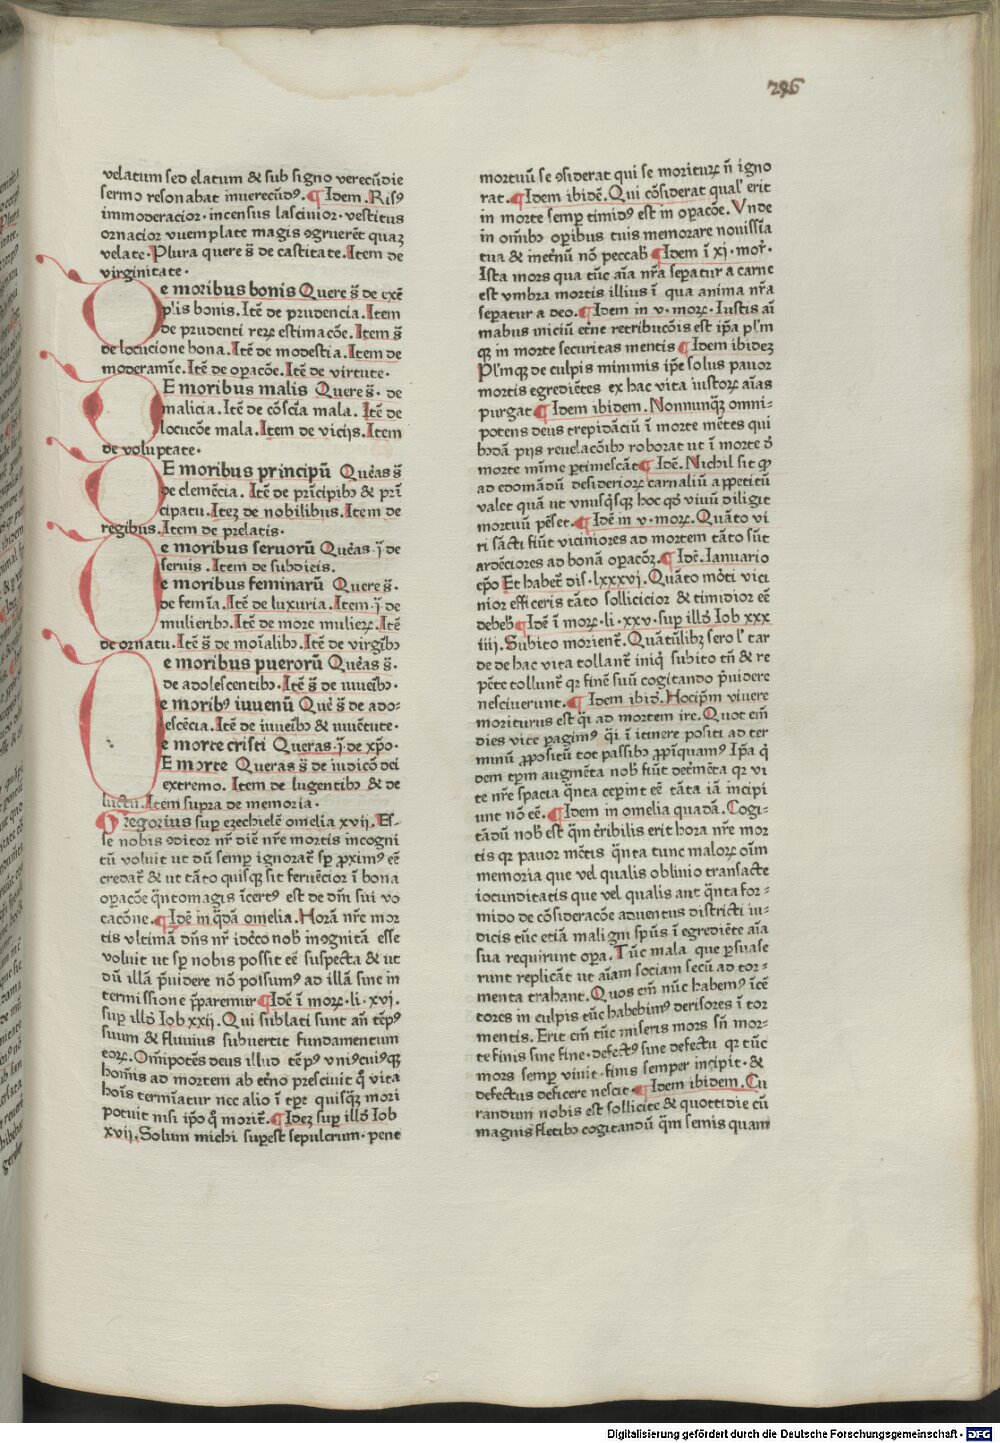 296
velatum sed elatum & sub signo verecūdie
sermo resonabat inuerecūdꝰ. ¶ Idem. Risꝰ
immoderacior· incensus lasciuior· vestitus
ornacior vuemplate magis ɔgruerēt quaꝫ
velate· Plura quere s̄ de castitate. Item de
virginitate·
De moribus bonis Quere s̄ de exē
pl'is bonis. Itē de prudencia. Item
de prudenti reꝝ estimacōe. Item s̄
de locucione bona. Itē de modestia. Item de
moderamīe. Itē de oꝑacōe. Itē de virtute·
DE moribus malis Quere s̄· de
malicia. Itē de cōscīa mala. Itē de
locucōe mala. Item de vicijs. Item
de voluptate·
DE moribus principū Que̓as s̄
de clemēcia. Itē de prīcipibꝫ & prī
cipatu. Iteꝫ de nobilibus. Item de
regibus. Item de prelatis·
De moribus seruorū Que̓as ·j̄· de
seruis . Item de subdicis.
De moribus feminarū Quere s̄·
de femīa. Itē de luxuria. Item ·j̄· de
mulieribꝫ. Itē de more mulieꝝ. Itē
de ornatu. Itē s̄ de moīalibꝫ. Itē de virgībꝫ
De moribus puerorū Que̓as s̄·
de adolescentibꝫ· Itē s̄ de iuueībꝫ·
De moribꝫ iuuenū Que̓ s̄ de ado-
lescēcia. Itē de iuueībꝫ & iuuētute·
De morte cristi Queras ·j̄· de xp̄o·
DE morte Queras s̄ de iudicō dei
extremo. Item de lugentibꝫ & de
luctu. Item supra de memoria·
Gregorius suꝑ ezechielē omelia xvij. Es-
se nobis ɔditor nr̄ diē nr̄e mortis incogni
tū voluit ut dū semꝑ ignorat̄ sꝑ ꝓximꝰ eē
credat̄ & ut tāto quisqꝫ sit feruēcior ī bona
oꝑacōe q̄ntomagis īcertꝰ est de dn̄i sui vo
cacōne. ¶ Idē in q̄dā omelia. Horā nr̄e mor
tis vltimā dn̄s nr̄ idēco nob̄ inɔgnitā esse
voluit ut sꝑ nobis possit eē suspecta & ut
dū illā p̄uidere nō possumꝰ ad illā sine in
termissione p̄paremur ¶ Idē ī moꝝ· li· xvj.
suꝑ illd̓ Iob xxij. Qui sublati sunt an̄ tēpꝰ
suum & fluuius subuertit fundamentum
eoꝝ. Om̄ipotēs deus illud tēpꝰ vniꝰcuiꝰqꝫ
hom̄is ad mortem ab et̓no presciuit qͦ vita
hoīs termīatur nec alio ī tꝑe quisqꝫ mori
potuit nisi ip̄o qͦ morit̄. ¶ Ideꝫ suꝑ illd̓ Iob
xvij. Solum michi suꝑest sepulcrum· pene
mortuū se ɔsiderat qui se morituꝝ n̄ igno
rat. ¶ Idem ibidē. Qui cōsiderat qual' erit
in morte semꝑ timidꝰ est in oꝑacōe. Vnde
in om̄ibꝫ oꝑibus tuis memorare nouissīa
tua & inet̓nū nō peccab̄ ¶ Idem ī xj· mor̓·
Ista mors qua tūc aīa nr̄a seꝑatur a carne
est vmbra mortis illius ī qua anima nr̄a
seꝑatur a deo. ¶ Idem in v· moꝝ· Iustis ai
mabus iniciū et̓ne retribucōis est ip̄a pl'm
qꝫ in morte securitas mentis ¶ Idem ibideꝫ
Pl'mqꝫ de culpis minimis ip̄e solus pauor
mortis egrediētes ex hac vita iustoꝝ aīas
purgat ¶ Idem ibidem. Nonnunqꝫ omni-
potens deus trepidāciū ī morte mētes qui
bꝫdā pijs reuelacōibꝫ roborat ut ī morte d̓
morte mīme ꝑtimescāt ¶ Idē. Nichil sit qͦ
ad edomādū desiderioꝝ carnaliū apꝑetitū
valet quā ut vnusq̓sqꝫ hoc qd̓ viuū diligit
mortuū pēset. ¶ Idē in v· moꝝ. Quāto vi
ri sācti fiūt viciniores ad mortem tāto sūt
ardēciores ad bonā oꝑacōꝫ. ¶ Idē. Ianuario
ep̄o Et habet̄ dis· lxxxvj. Quāto mo̓ti vici
nior efficeris tāto sollicicior & timidior eē
debeb̄ ¶ Idē ī moꝝ· li· xxv· suꝑ illd̓ Iob xxx
iiij. Subito morient̄. Quātūlibꝫ sero l' tar
de de hac vita tollant̄ iniq̓ subito tn̄ & re
pēte tollunt̄ qꝛ finē suū cogitando p̄uidere
nesciuerunt. ¶ Idem ibid̓. Hocip̄m viuere
moriturus est q̄i ad mortem ire. Quot em̄
dies vite ꝑagimꝰ q̄i ī itinere positi ad ter
minū ꝓpositū tot passibꝫ ꝓpīquamꝰ Ip̄a q̓
dem tꝑm augmēta nob̄ fiūt det̓mēta qꝛ vi
te nr̄e spacia q̄nta ceꝑint eē tāta iā incipi
unt nō eē. ¶ Idem in omelia quadā. Cogi-
tādū nob̄ est q̄m t̓ribilis erit hora nr̄e mor
tis qꝛ pauor mētis q̄nta tunc maloꝝ oīm
memoria que vel qualis obliuio transacte
iocunditatis que vel qualis aut q̄nta for-
mido de cōsideracōe aduentus districti iu-
dicis tūc etiā maligni sp̄us ī egrediēte aīa
sua requirunt oꝑa. Tūc mala que ꝑsuase
runt replicāt ut aīam sociam secū ad tor-
menta trahant. Quos em̄ nūc habemꝰ īcē
tores in culpis tūc habebimꝰ derisores ī tor
mentis. Erit em̄ tūc miseris mors sn̄ mor-
te finis sine fine· defectꝰ sine defectu qꝛ tūc
mors semꝑ viuit· finis semper incipit· &
defectus deficere nescit. ¶ Idem ibidem. Cu
randum nobis est sollicite & quottidie cū
magnis fletibꝫ cogitandū q̄m semis quam
Digitalisierung gefördert durch die Deutsche Forschungsgemeinschaft · DFG